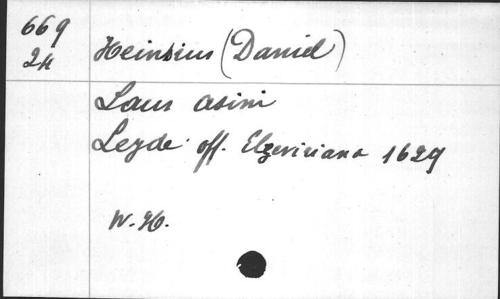 669
24
Heinsius (Daniel)
Laus asini
Leyde off. Elzeviriana 1629
W. H.